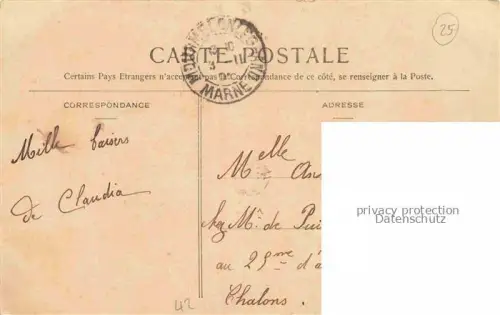 25
CARTE POSTALE
Certains Pays Etrangers n'acceptent pas la Correspondance de ce côté, se renseigner à la Poste.
CORRESPONDANCE
ADRESSE
MARNE
Mille baisers
de Claudia
Melle
chez M. de
au 25me d'a
Chalons.
privacy protection
Datenschutz
42